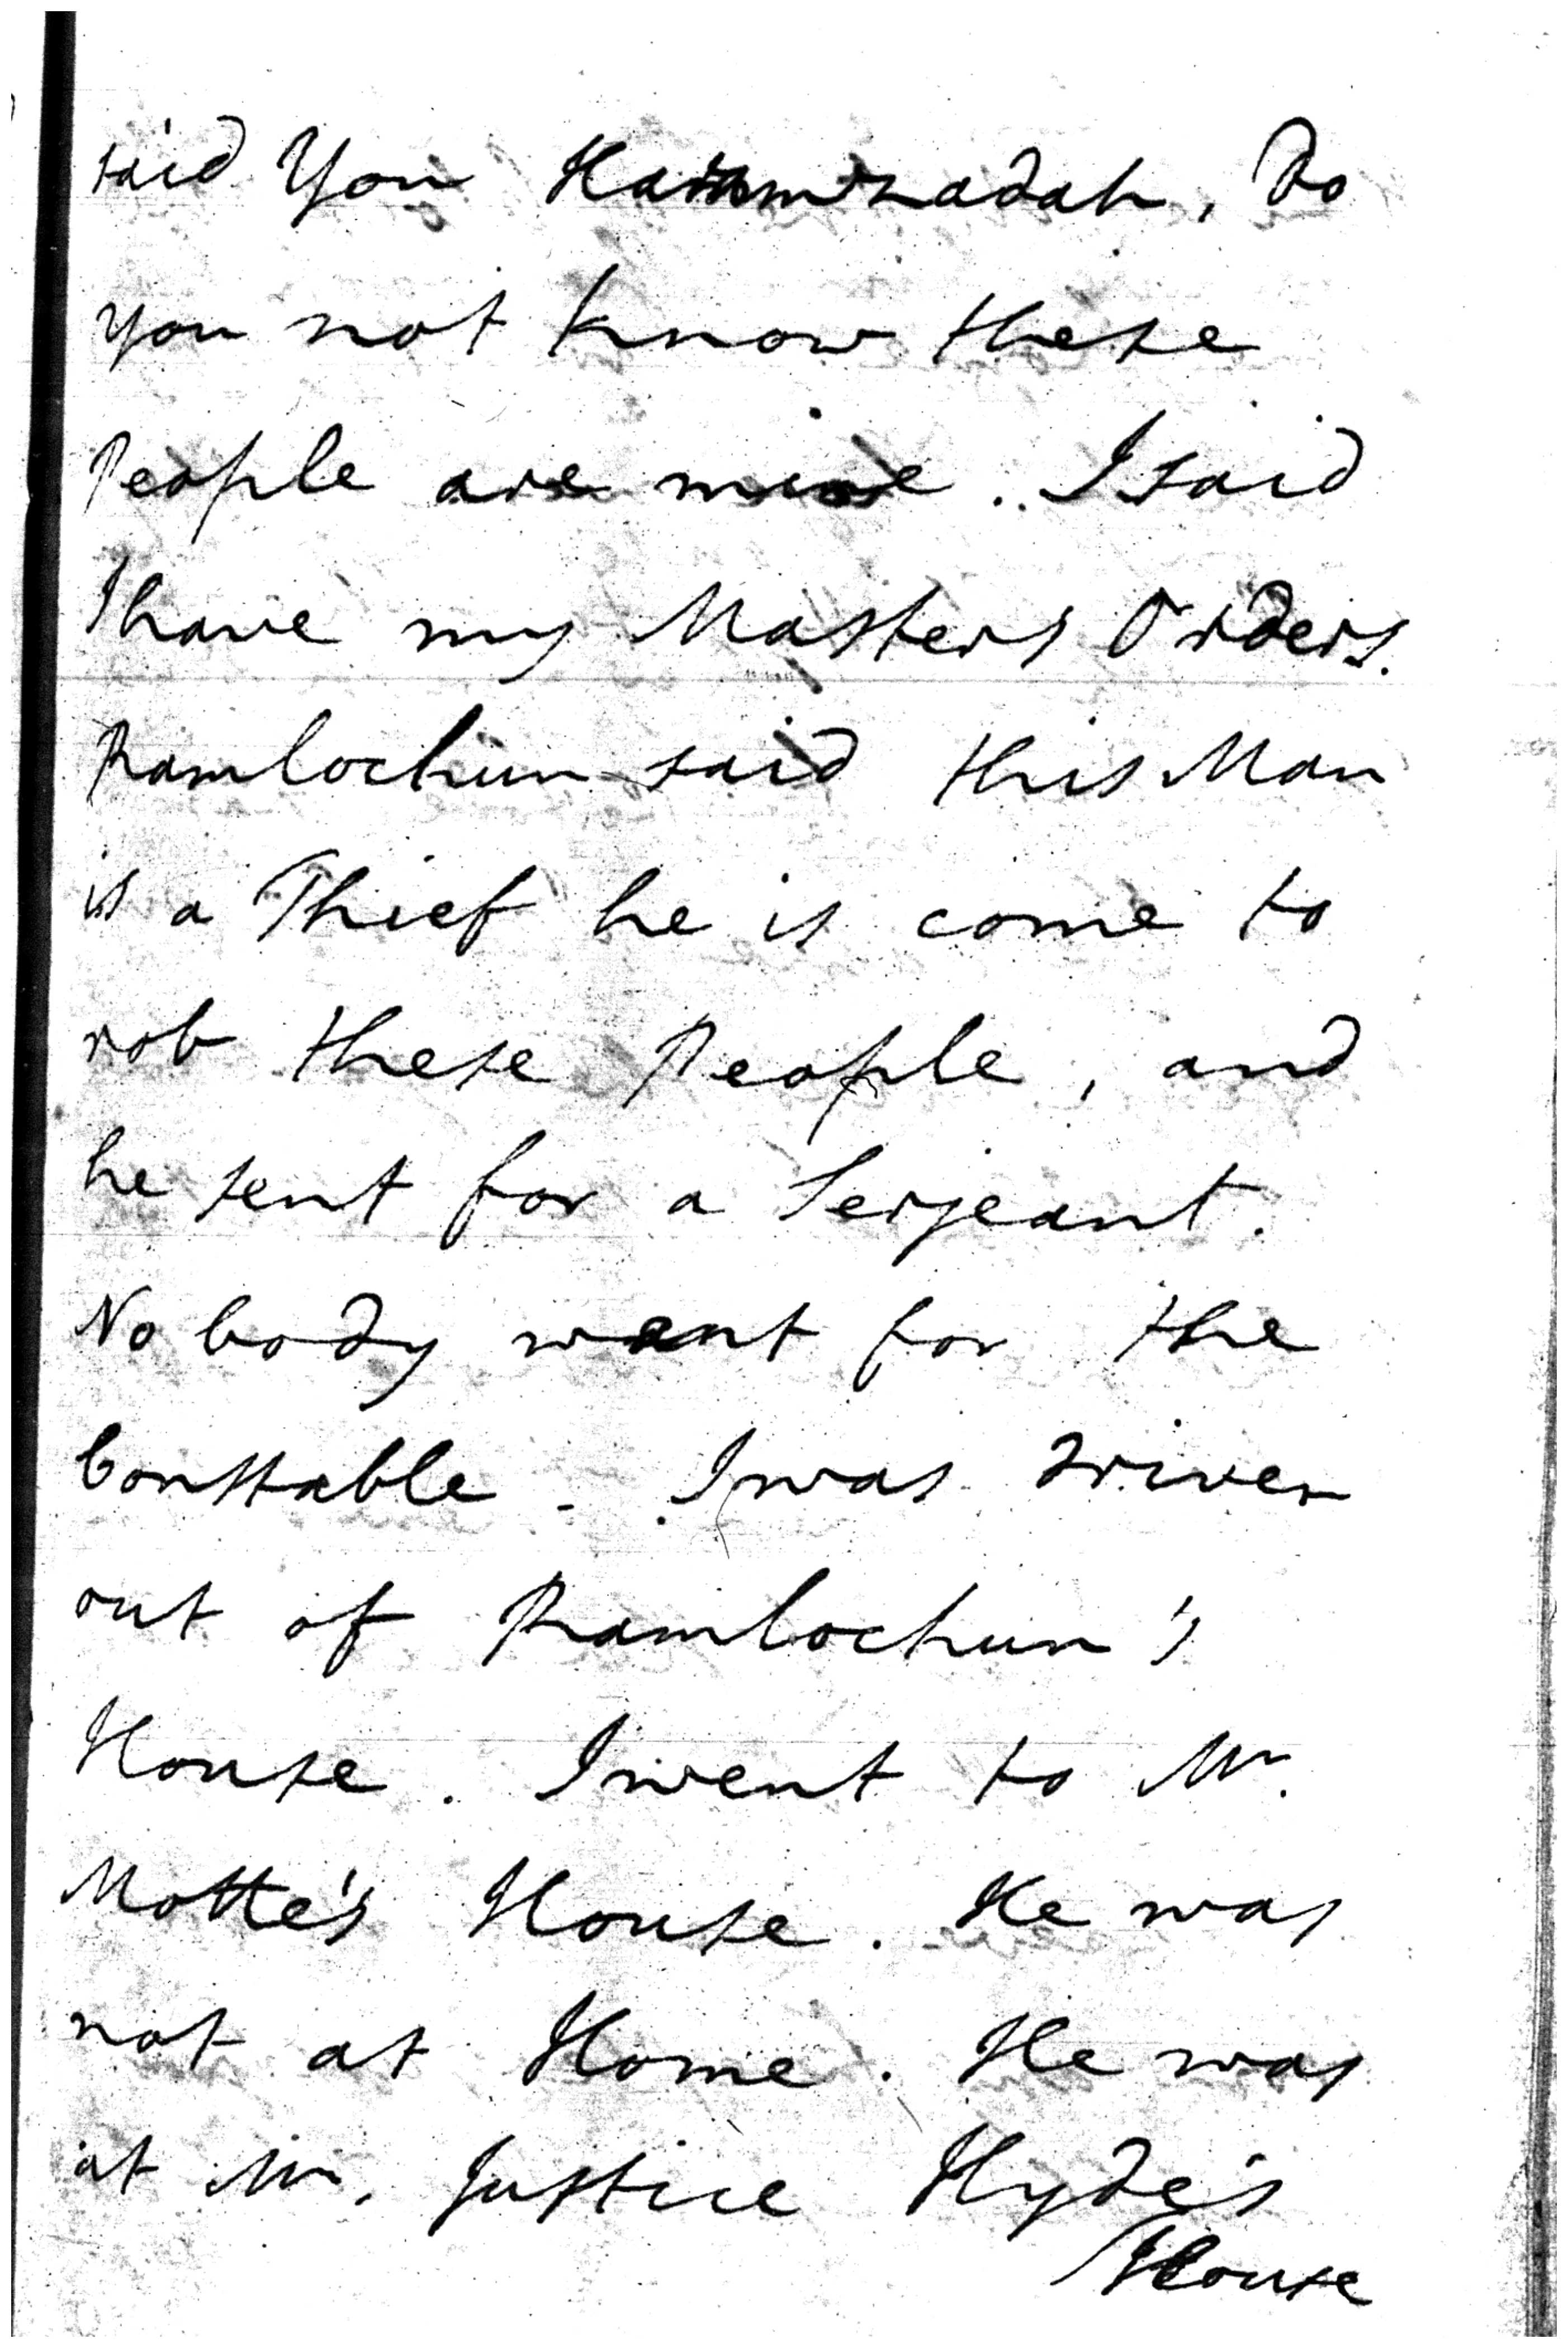 said You Haramzadah, Do
you not know these
People are mine. I said
I have my Masters Orders.
Ramlochun said this Man
is a Thief he is come to
rob these People, and
he sent for a Serjeant.
No body went for the
Constable. I was driven
out of Ramlochun's
House. I went to Mr.
Motte's House. He was
not at Home. He was
at Mr. Justice Hyde's
House